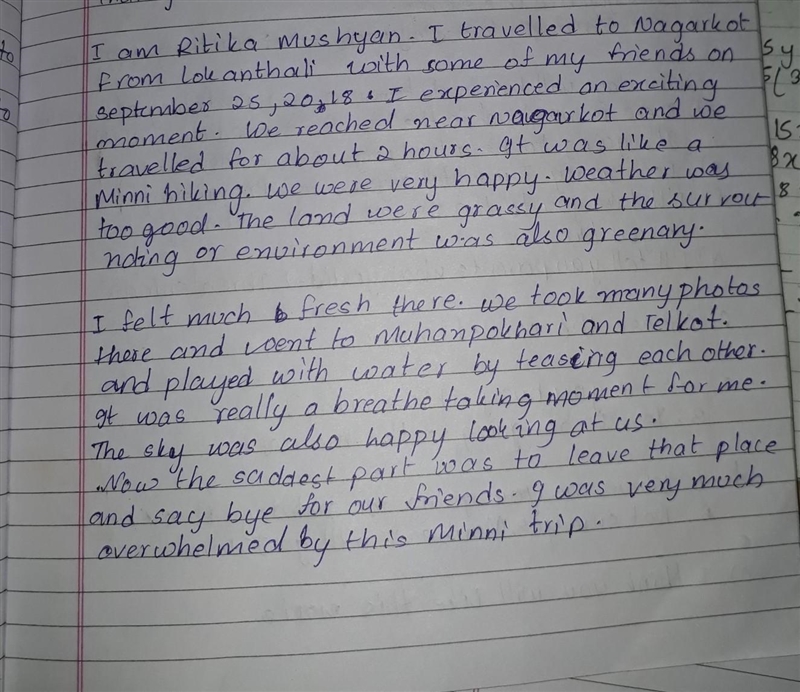 I am Ritika Mushyan. I travelled to Nagarkot
from Lokanthali with some of my friends on
september 25, 20,18. I experienced an exciting
moment. We reached near Nagarkot and we
travelled for about 2 hours. It was like a
Minni hiking. we were very happy. weather was
too good. The land were grassy and the surrou
nding or environment was also greenary.
I felt much fresh there. we took many photos
there and went to Muhanpokhari and Telkot.
and played with water by teasing each other.
It was really a breathe taking moment for me.
The sky was also happy looking at us.
Now the saddest part was to leave that place
and say bye for our friends. I was very much
overwhelmed by this Minni trip.
to
5 y
15
8x
8